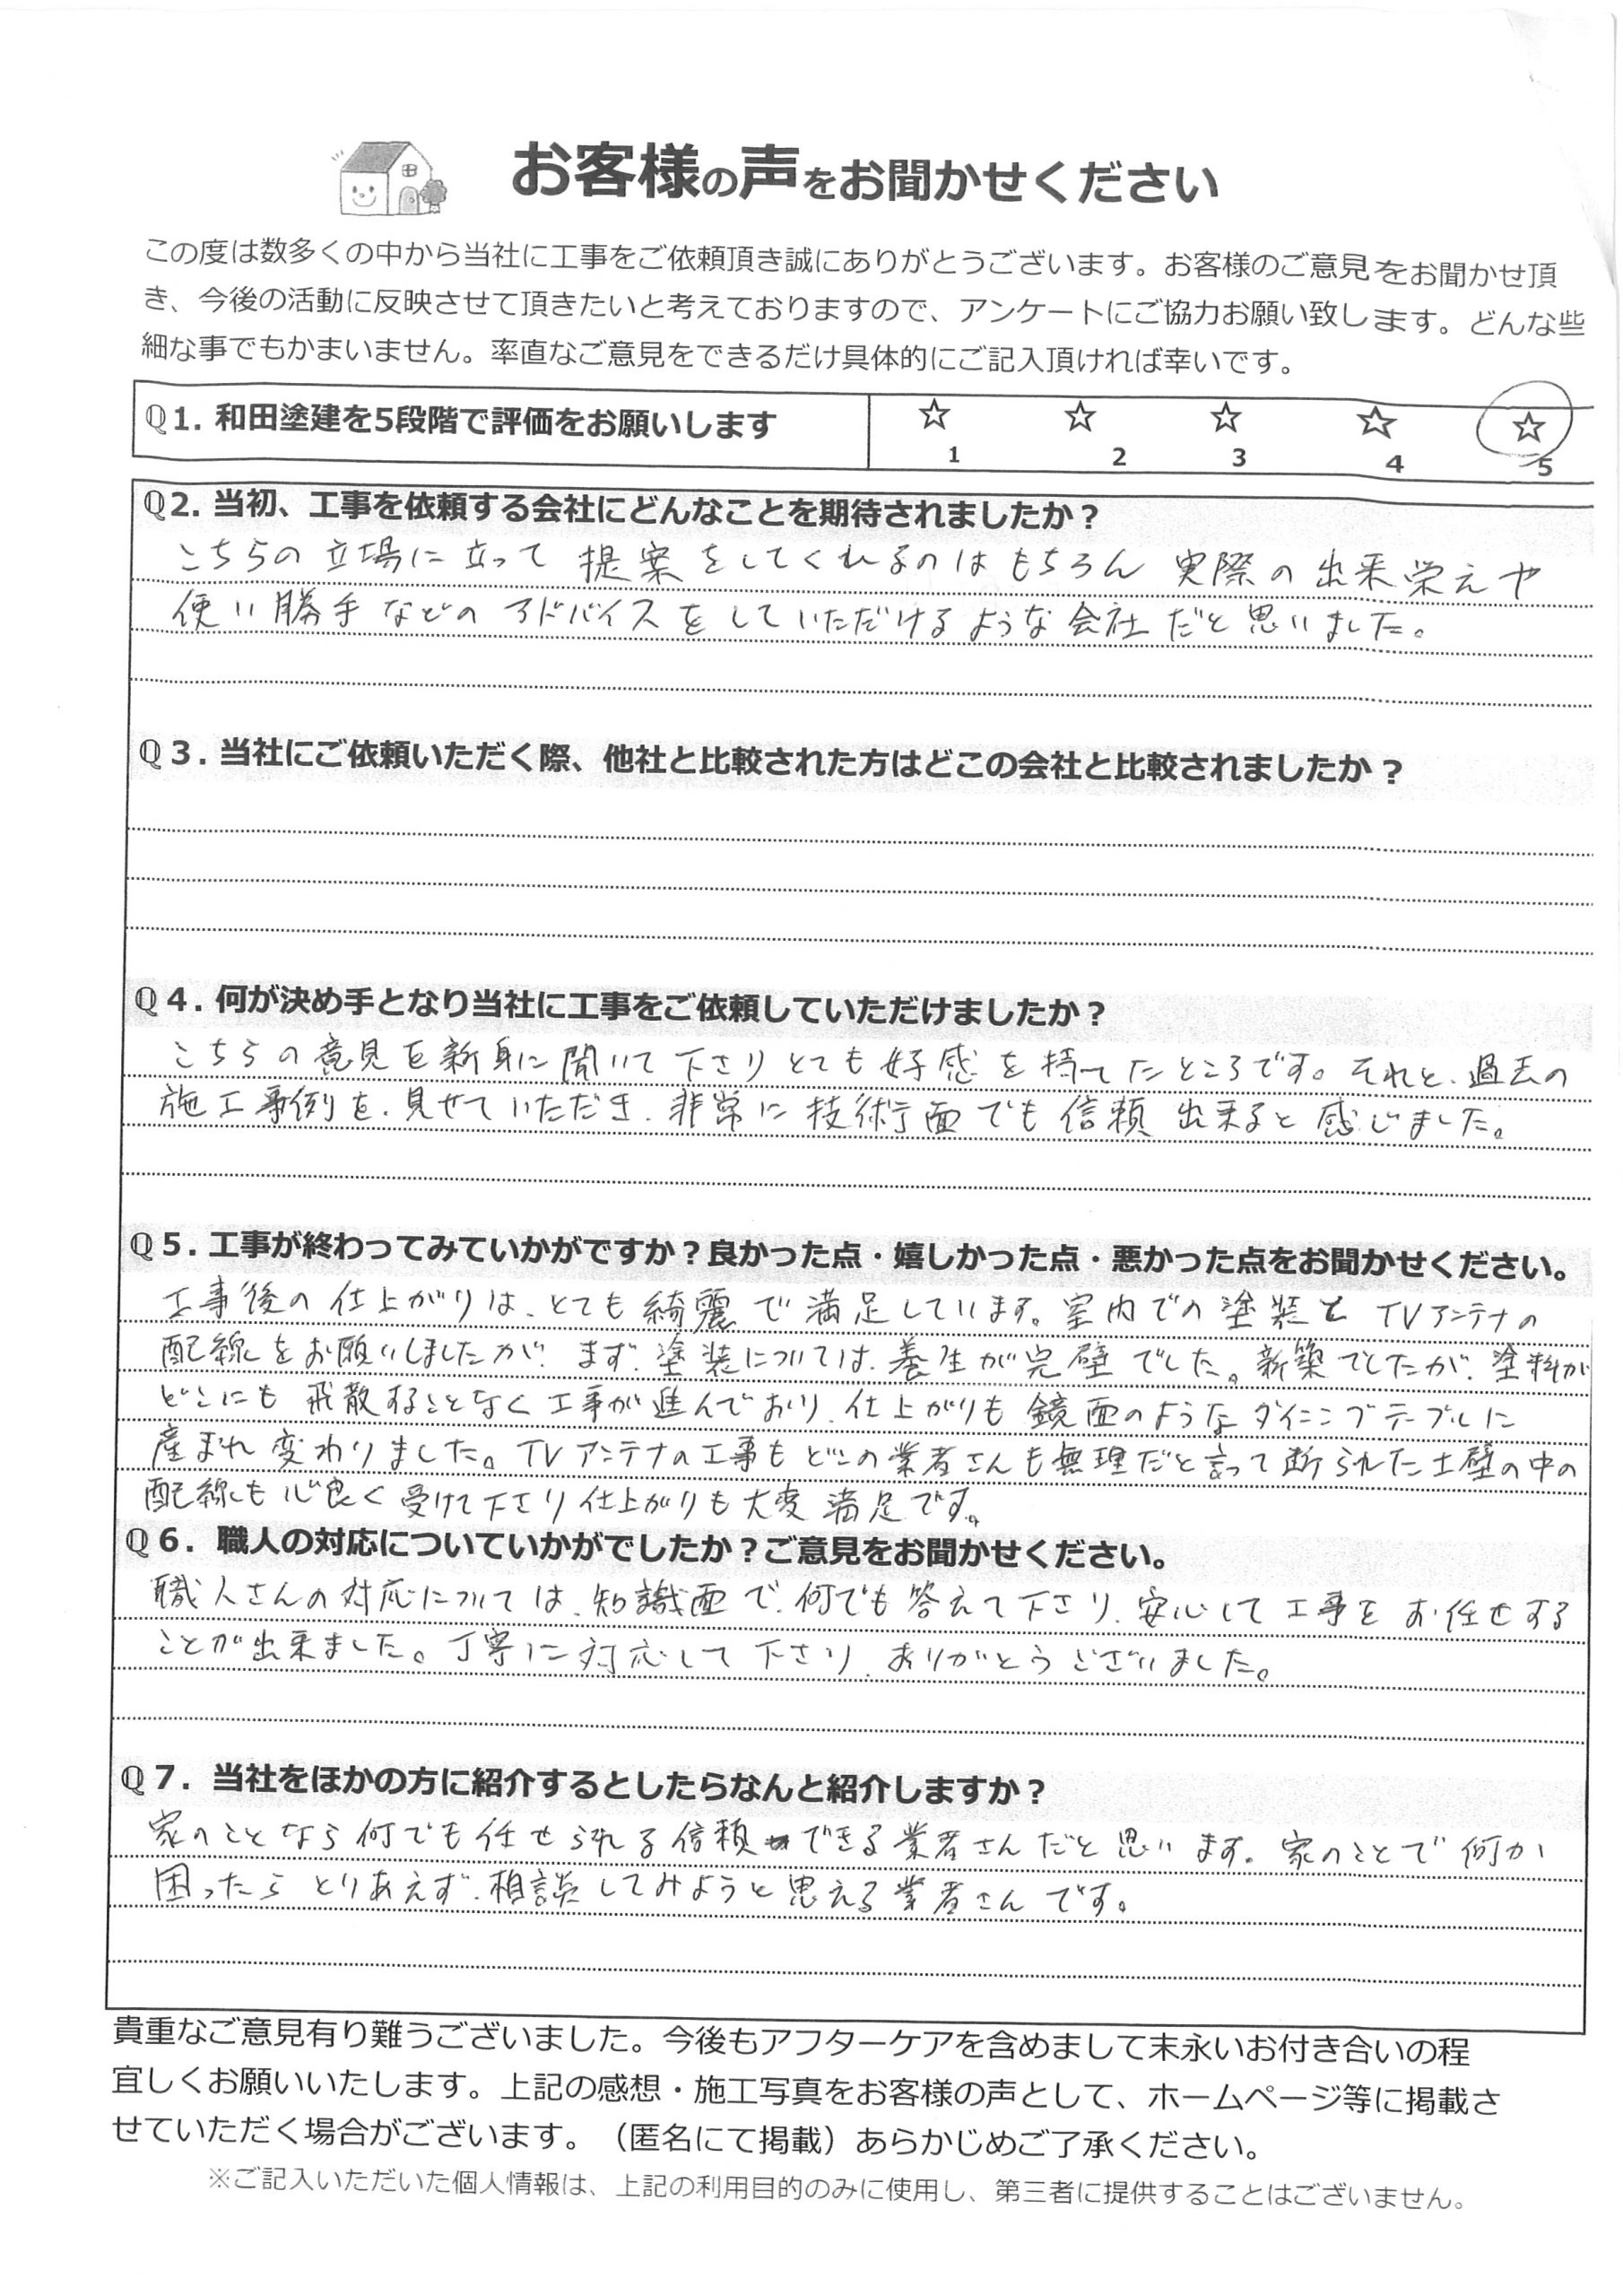 お客様の声をお聞かせください
この度は数多くの中から当社に工事をご依頼頂き誠にありがとうございます。お客様のご意見をお聞かせ頂
き、今後の活動に反映させて頂きたいと考えておりますので、アンケートにご協力お願い致します。どんな些
細な事でもかまいません。率直なご意見をできるだけ具体的にご記入頂ければ幸いです。
Q1. 和田塗建を5段階で評価をお願いします ☆ ☆ ☆ ☆ ☆
1 2 3 4 5
Q2. 当初、工事を依頼する会社にどんなことを期待されましたか？
こちらの立場に立って提案をしてくれるのはもちろん実際の出来栄えや
使い勝手などのアドバイスをしていただけるような会社だと思いました。
Q3. 当社にご依頼いただく際、他社と比較された方はどこの会社と比較されましたか？
Q4. 何が決め手となり当社に工事をご依頼していただけましたか？
こちらの意見を新身に聞いて下さりとても好感を持てたところです。それと、過去の
施工事例を、見せていただき、非常に技術面でも信頼出来ると感じました。
Q5. 工事が終わってみていかがですか？良かった点・嬉しかった点・悪かった点をお聞かせください。
工事後の仕上がりは、とても綺麗で満足しています。室内での塗装とTVアンテナの
配線をお願いしましたが、まず、塗装については、養生が完璧でした。新築でしたが、塗料が
どこにも飛散することなく工事が進んでおり、仕上がりも鏡面のようなダイニングテーブルに
産まれ変わりました。TVアンテナの工事もどこの業者さんも無理だと言って断られた土壁の中の
配線も心良く受けて下さり仕上がりも大変満足です。
Q6. 職人の対応についていかがでしたか？ご意見をお聞かせください。
職人さんの対応については、知識面で、何でも答えて下さり、安心して工事をお任せする
ことが出来ました。丁寧に対応して下さり、ありがとうございました。
Q7. 当社をほかの方に紹介するとしたらなんと紹介しますか？
家のことなら何でも任せられる信頼できる業者さんだと思います。家のことで何か
困ったらとりあえず、相談してみようと思える業者さんです。
貴重なご意見有り難うございました。今後もアフターケアを含めまして末永いお付き合いの程
宜しくお願いいたします。上記の感想・施工写真をお客様の声として、ホームページ等に掲載さ
せていただく場合がございます。（匿名にて掲載）あらかじめご了承ください。
※ご記入いただいた個人情報は、上記の利用目的のみに使用し、第三者に提供することはございません。